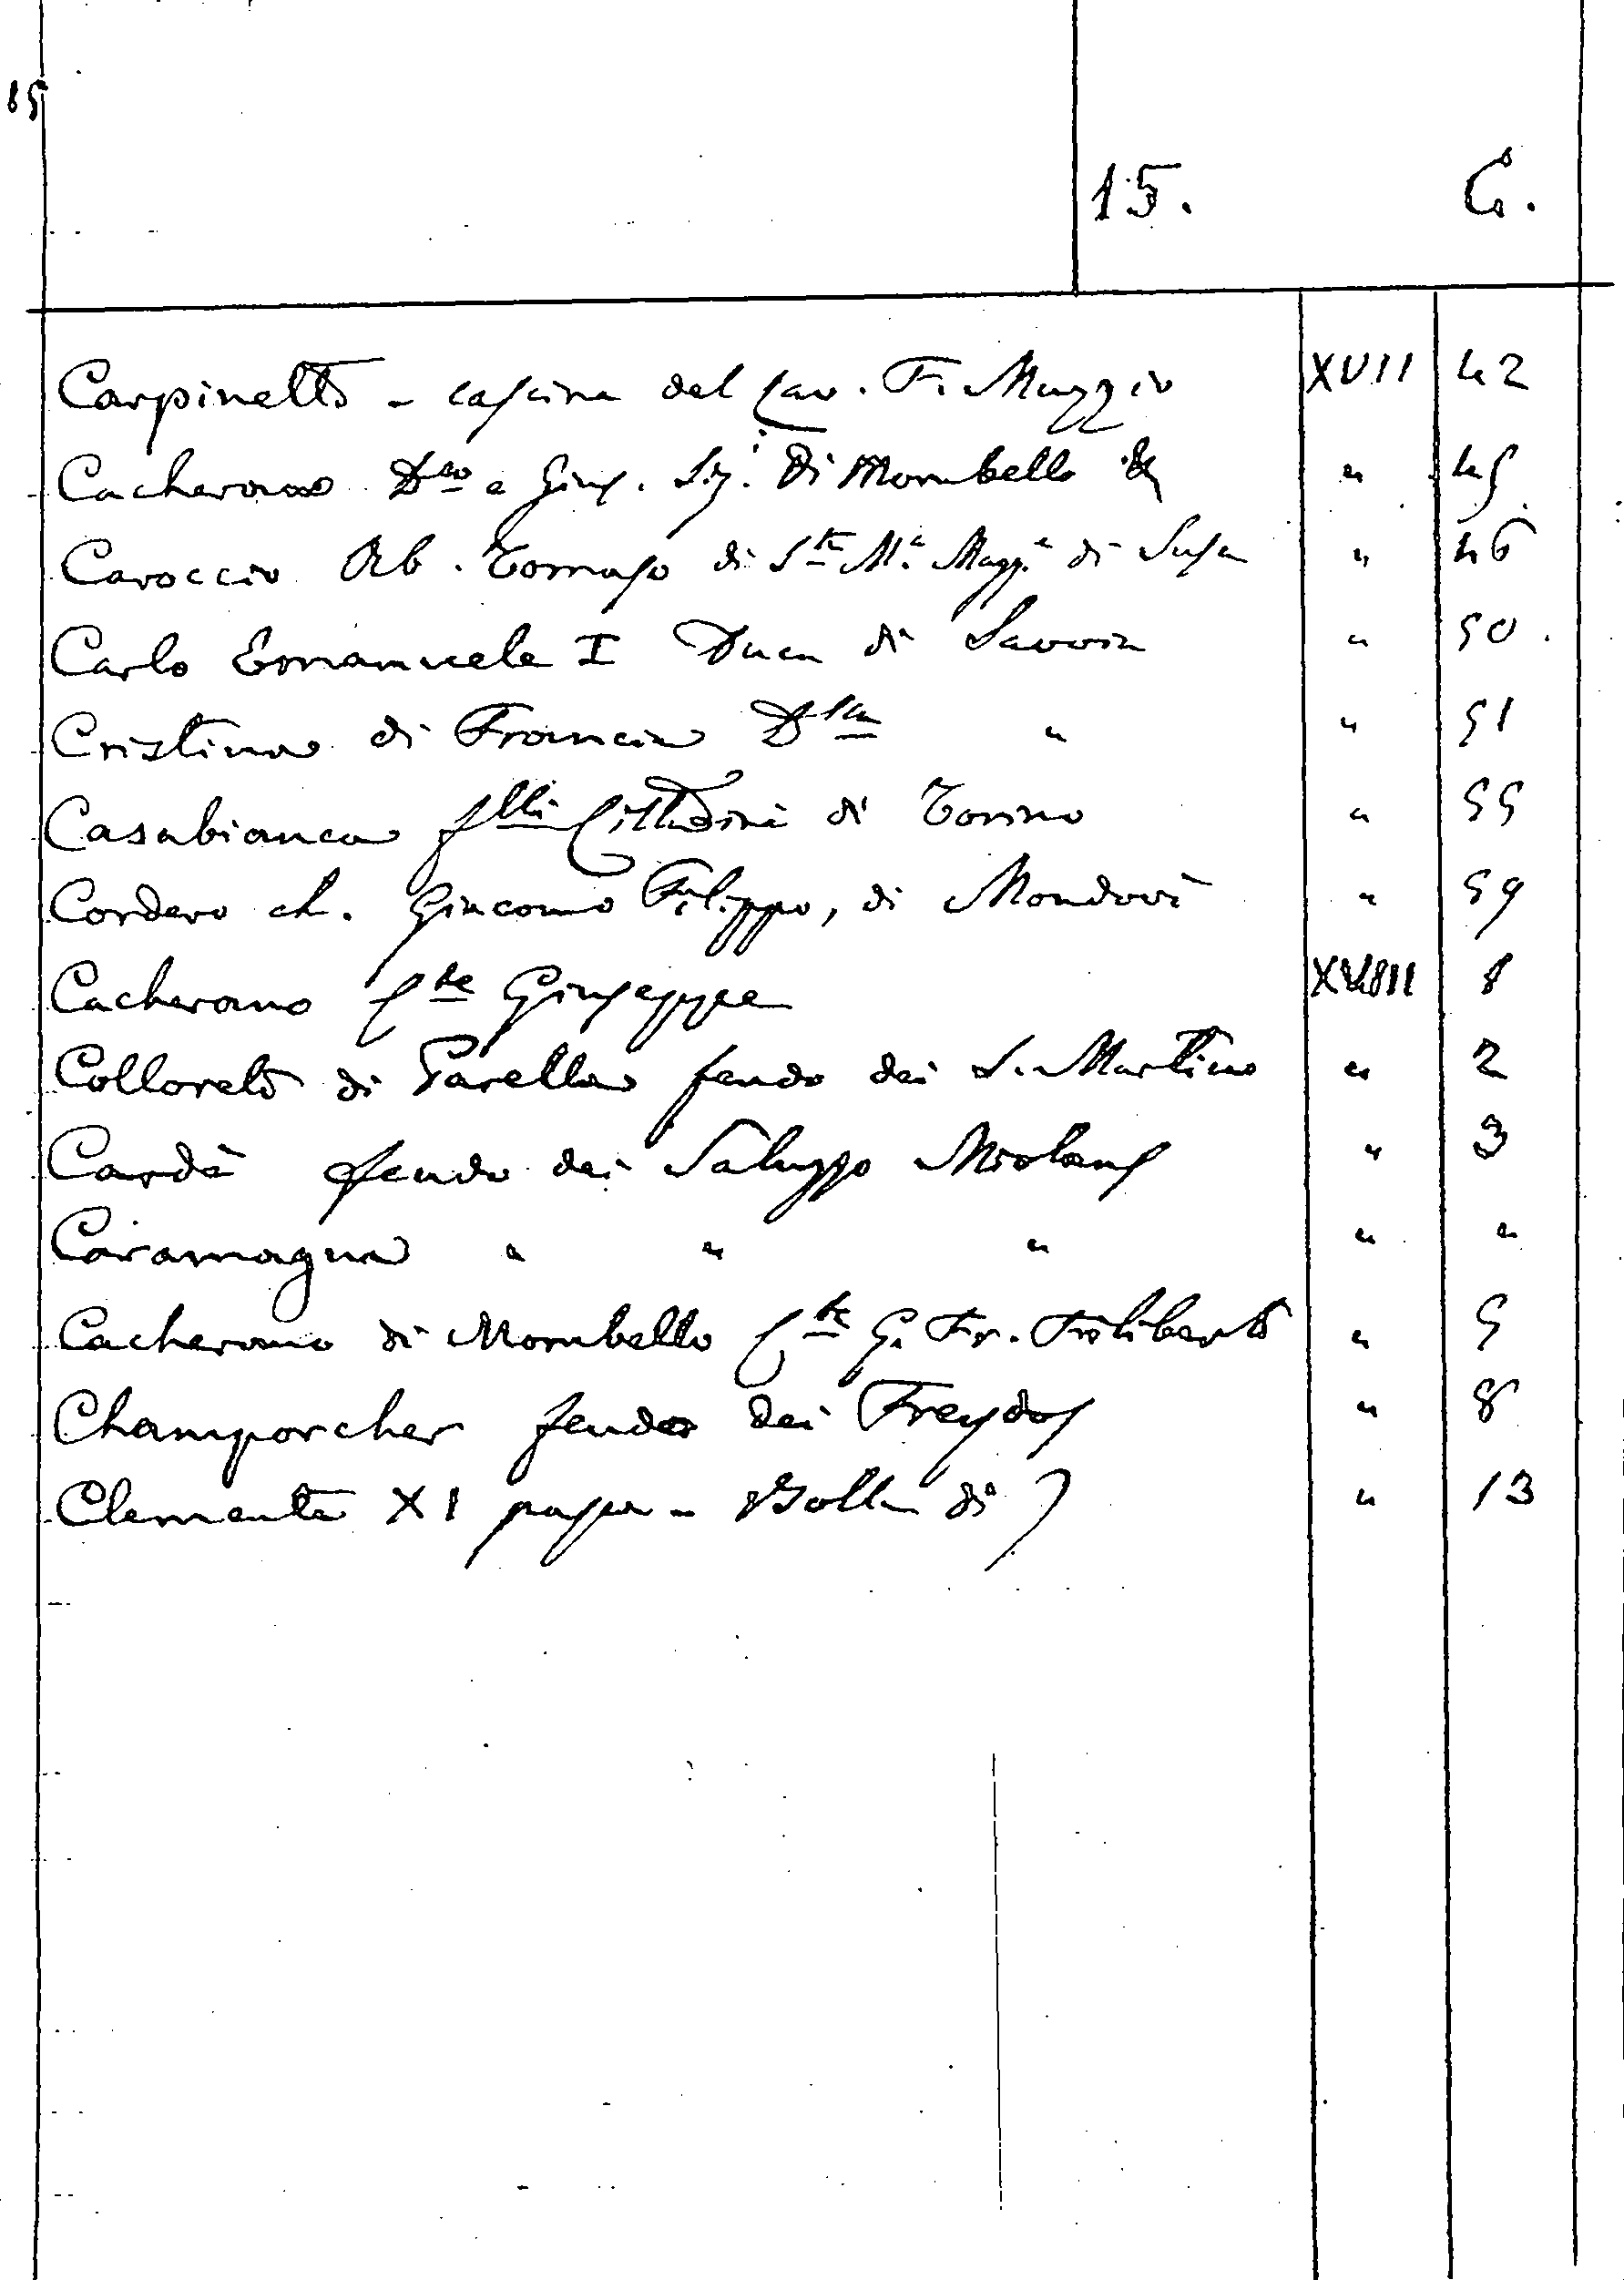 85
15. C.
Carpinetto - cascina del Cav. F. Muzzio XVII 42
Cacherano Dco e Gius. Sig.i di Mombello & " 45
Caroccio Ab. Tomaso di Sta M.a Magg.e di Susa " 46
Carlo Emanuele I Duca di Savoia " 50.
Cristina di Francia Dssa " " 51
Casabianca flli Cittadini di Torino " 55
Cordero ch. Giacomo Filippo, di Mondovì " 59
Cacherano Cte Giuseppe XVIII 1
Colloreto di Parella feudo dei S. Martino " 2
Cardè feudo dei Saluzzo Miolans " 3
Caramagna " " " " "
Cacherano di Mombello Cte G. Fr. Filiberto " 5
Champorcher feudo dei Freydos " 8
Clemente XI papa - Bolla di) " 13